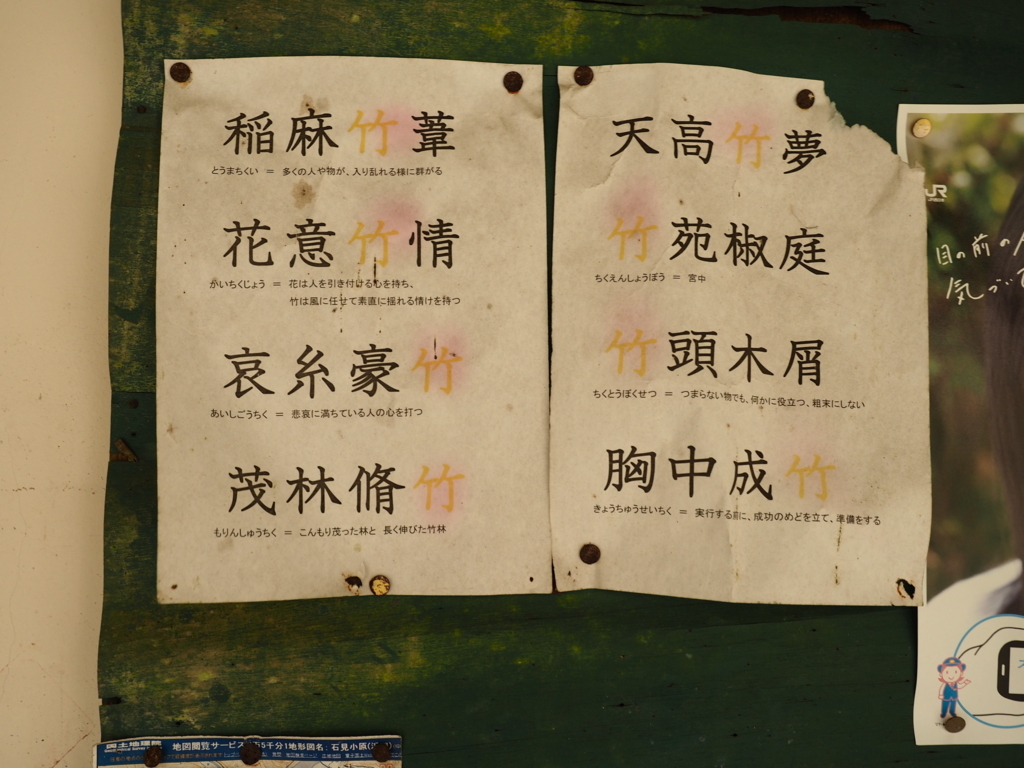 稲麻竹葦
とうまちくい ＝ 多くの人や物が、入り乱れる様に群がる
花意竹情
かいちくじょう ＝ 花は人を引き付ける心を持ち、
竹は風に任せて素直に揺れる情けを持つ
哀糸豪竹
あいしごうちく ＝ 悲哀に満ちている人の心を打つ
茂林脩竹
もりんしゅうちく ＝ こんもり茂った林と 長く伸びた竹林
天高竹夢
竹苑椒庭
ちくえんしょうぼう ＝ 宮中
竹頭木屑
ちくとうぼくせつ ＝ つまらない物でも、何かに役立つ、粗末にしない
胸中成竹
きょうちゅうせいちく ＝ 実行する前に、成功のめどを立て、準備をする
JR
目の前の
気づいて
国土地理院 地図閲覧サービス 2万5千分1地形図名：石見小原